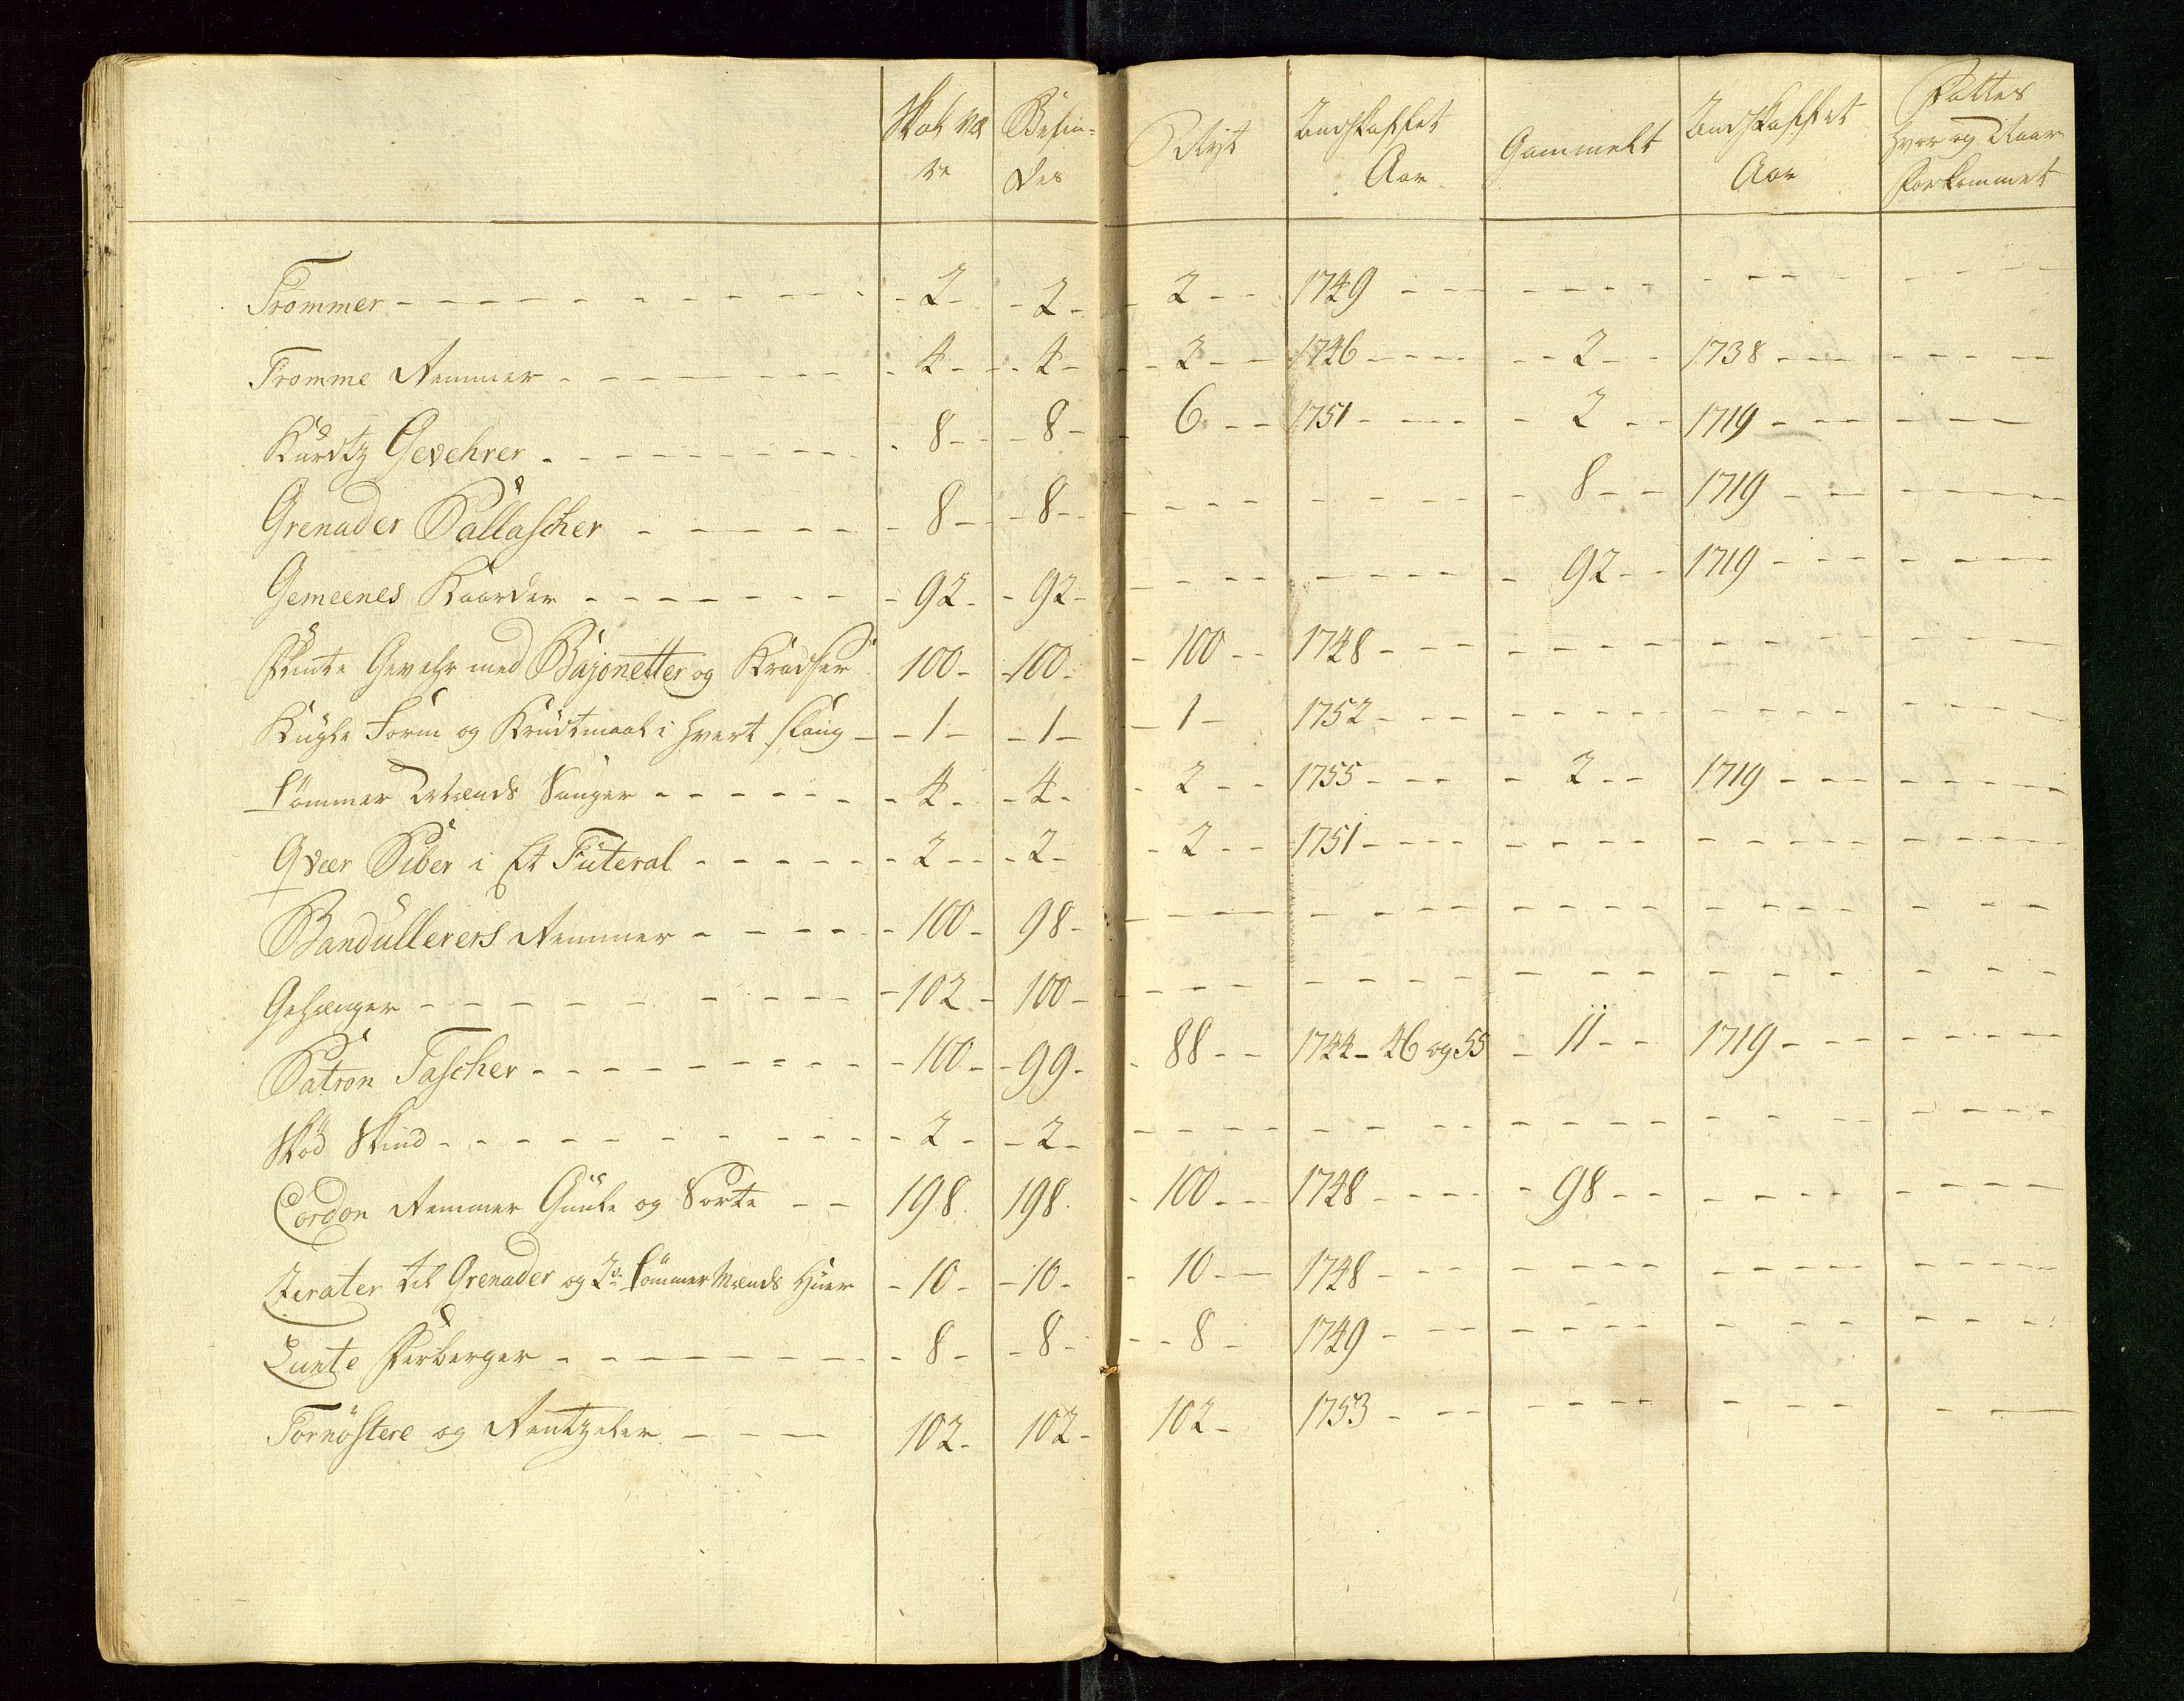 Skal væ Befin= Nyt Andskaffet Gammelt Andskaffet Fattes
re des Aar Aar hvor og Naar
forkommet
Trommer - 2 - 2 - 2 - 1749 - - - -
Tromme Remmer - 4 - 4 - 2 - 1746 - 2 - 1738 - -
Kurtz Gevehrer - 8 - 8 - 6 - 1751 - 2 - 1719 - -
Grenader Pallascher - 8 - 8 - - - 8 - 1719 - -
Gemeenes Kaarder - 92 - 92 - - - 92 - 1719 - -
Flinte Gevehr med Bajonetter og Kradser 100 - 100 - 100 - 1748 - - - -
Kugle Form og Krudtmaal i hvert slaug - 1 - 1 - 1 - 1752 - - - -
Tömmer Mænds Sauger - 4 - 4 - 2 - 1755 - 2 - 1719 - -
Qvær Piber i Et Futeral - 2 - 2 - 2 - 1751 - - - -
Bandullerers Remmer - 100 - 98 - - - - - -
Gehænger - 102 - 100 - - - - - -
Patron Tascher - 100 - 99 - 88 - 1744 - 46 og 55 - 11 - 1719 - -
Skød Skind - 2 - 2 - - - - - -
Cordon Remmer Guule og Sorte - 198 198 - 100 - 1748 - 98 - - -
Zirater til Grenader og 2de Tömmer Mænds Huer - 10 - 10 - 10 - 1748 - - - -
Lunte Ferberger - 8 - 8 - 8 - 1749 - - - -
Tornöstere og Rentzeler - 102 - 102 - 102 - 1753 - - - -